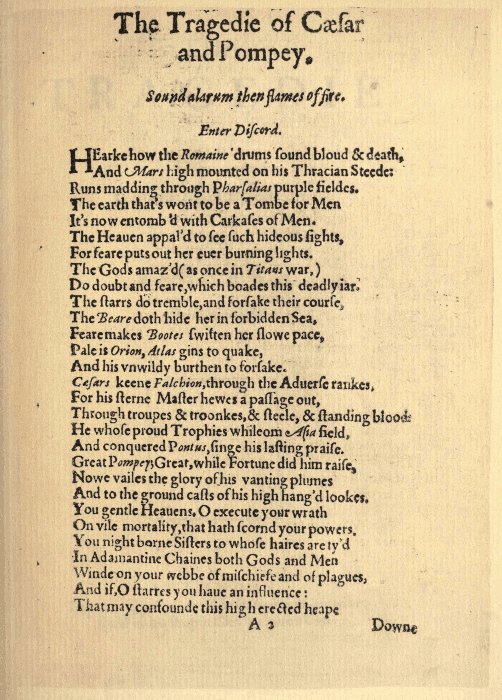 The Tragedie of Cæſar
and Pompey.
Sound alarum then flames of fire.
Enter Diſcord.
HEarke how the Romaine drums ſound bloud & death,
And Mars high mounted on his Thracian Steede:
Runs madding through Pharſalias purple fieldes.
The earth that's wont to be a Tombe for Men
It's now entomb'd with Carkaſes of Men.
The Heauen appal'd to ſee ſuch hideous ſights,
For feare puts out her euer burning lights.
The Gods amaz'd (as once in Titans war,)
Do doubt and feare, which boades this deadly iar.
The ſtarrs do tremble, and forſake their courſe,
The Beare doth hide her in forbidden Sea,
Feare makes Bootes ſwiften her ſlowe pace,
Pale is Orion, Atlas gins to quake,
And his vnwildy burthen to forſake.
Cæſars keene Falchion, through the Aduerſe rankes,
For his ſterne Maſter hewes a paſſage out,
Through troupes & troonkes, & ſteele, & ſtanding blood:
He whoſe proud Trophies whileom Aſia field,
And conquered Pontus, ſinge his laſting praiſe.
Great Pompey; Great, while Fortune did him raiſe,
Nowe vailes the glory of his vanting plumes
And to the ground caſts of his high hang'd lookes.
You gentle Heauens, O execute your wrath
On vile mortality, that hath ſcornd your powers.
You night borne Siſters to whoſe haires are ty'd
In Adamantine Chaines both Gods and Men
Winde on your webbe of miſchiefe and of plagues,
And if, O ſtarres you haue an influence:
That may confounde this high erected heape
A 2
Downe